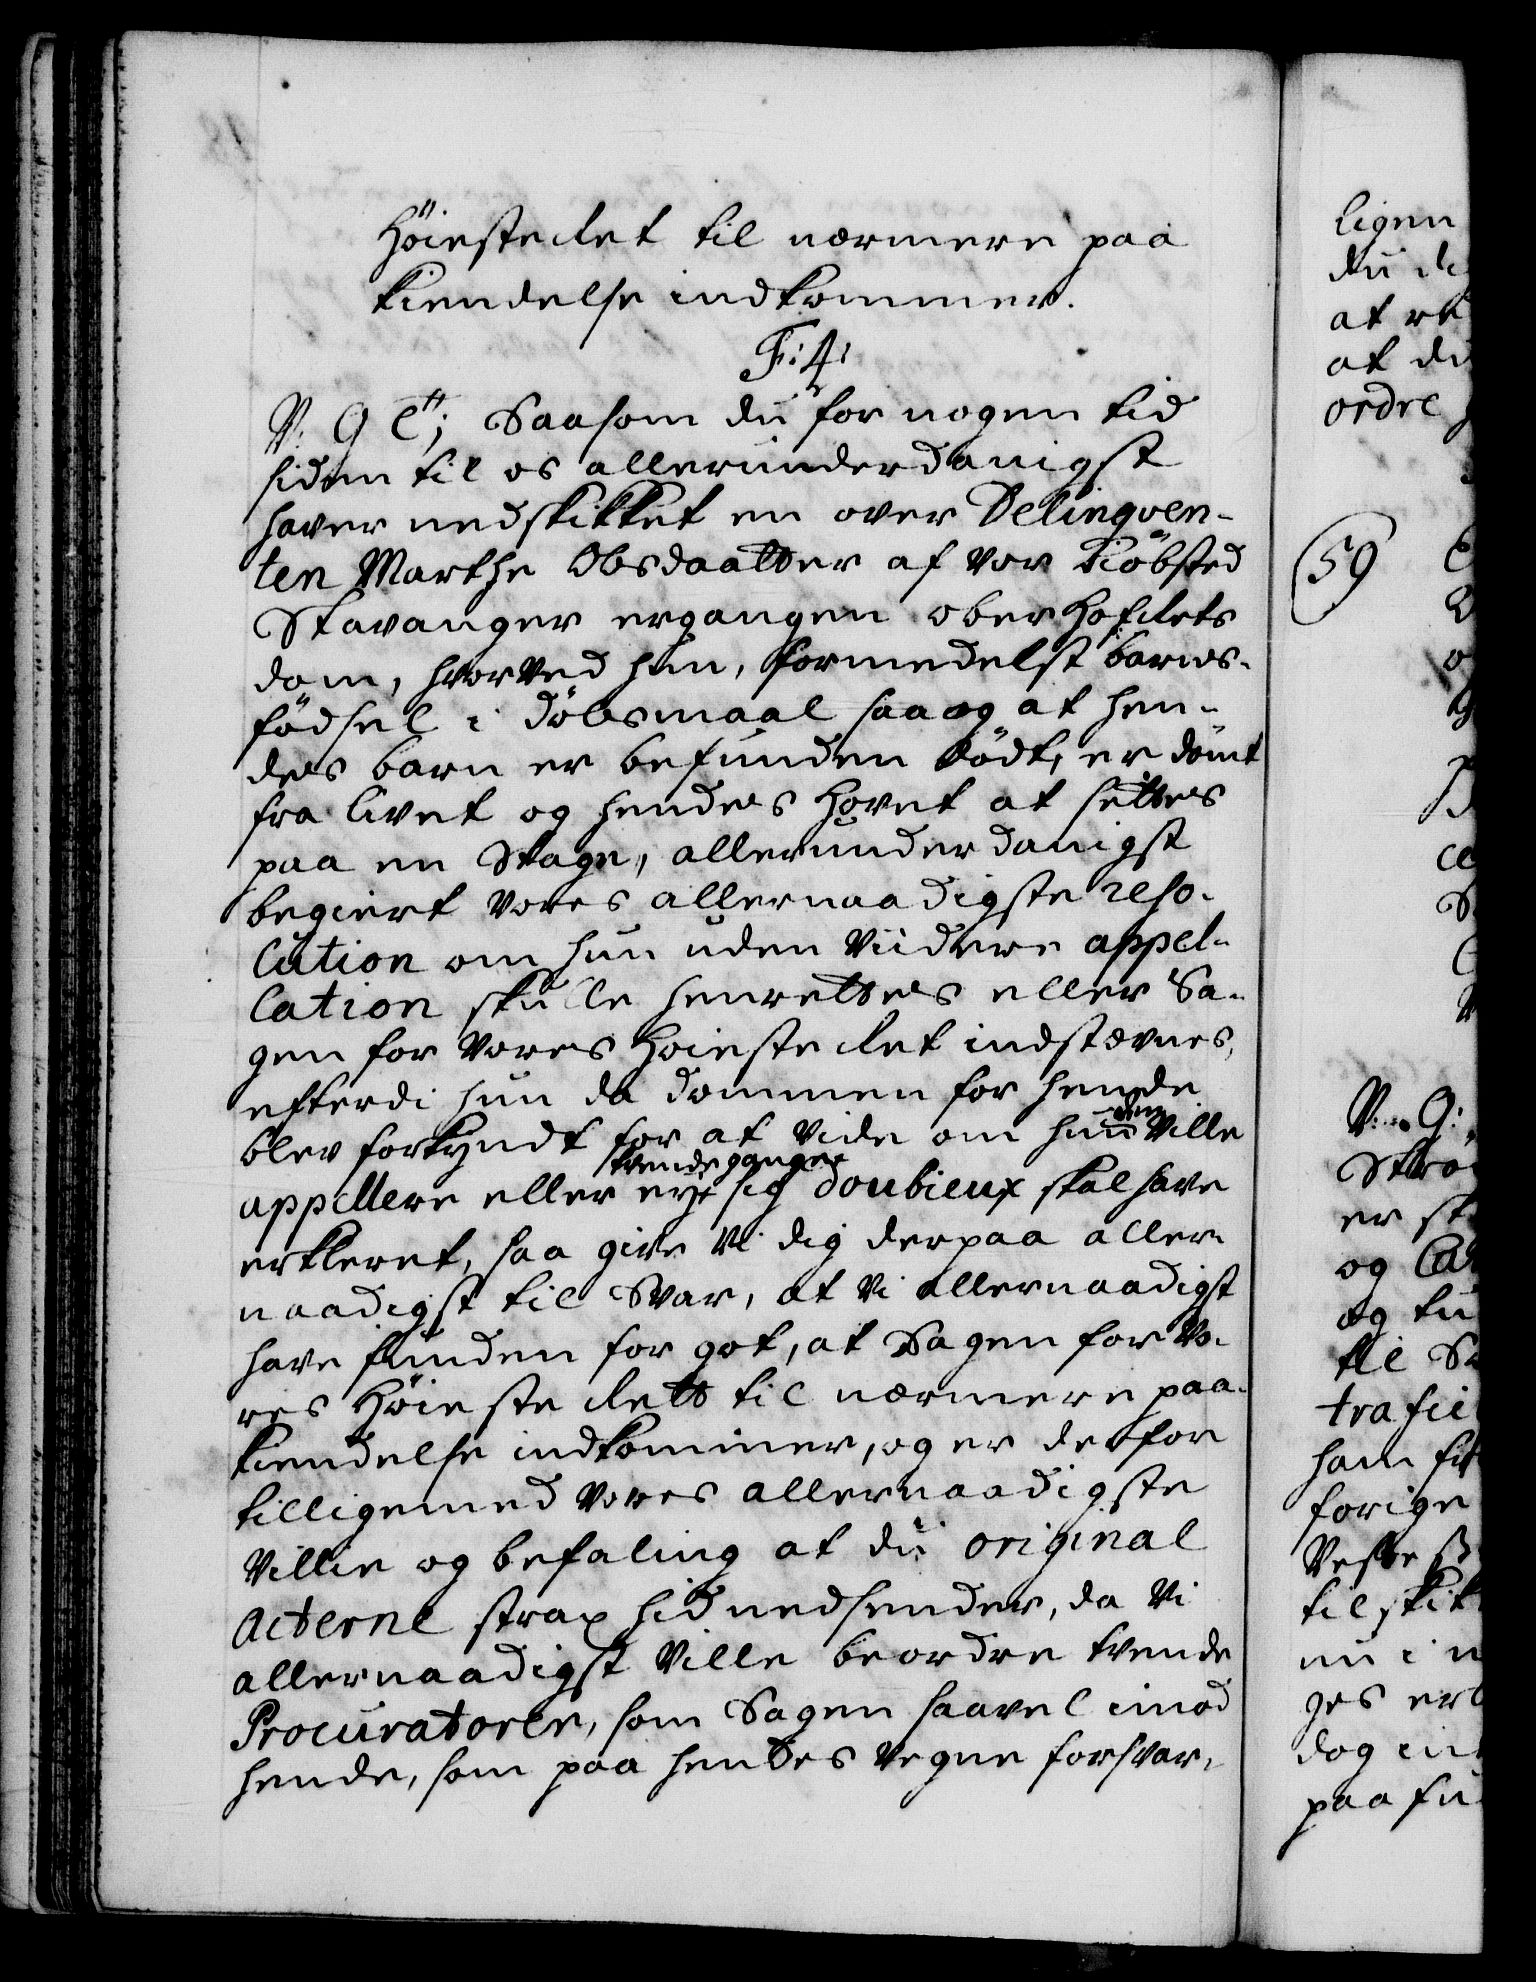 Höiesteclet til nærmere paa
kiendelse indkommer.
F: 4:
V: G Ett; Saasom du for nogen tid
siden til os allerunderdanigst
haver nedskikket en over Delinqven-
ten Marthe Olsdaatter af vor Kiöbsted
Stavanger ergangen ober Hofrets
dom, hvorved hun, formedelst barns-
födsel i dölsmaal saa og at hen-
des barn er befunden dödt, er dömt
fra livet og hendes Hovet at settes
paa en Stage, allerunderdanigst
begiert vores allernaadigste reso-
lution om hun uden viidere appel-
lation skulle henrettes eller Sa-
gen for vores Höiesteret indstævnes,
efterdi hun da dommen for hende
blev forkyndt for at vide om hun den ville
appellere eller ey trende gange sig doubieux skal have
erkleret, saa give Vi dig derpaa aller-
naadigst til Svar, at Vi allernaadigst
have funden for got, at Sagen for Vo-
res Höiesterett til nærmere paa-
kiendelse indkommer, og er derfor
tilligemed vores allernaadigste
Villie og befaling at du original
acterne strax hid nedsender, da Vi
allernaadigst ville beordre tvende
Procuratorer, som Sagen saavel imod
hende, som paa hendes vegne forsvar-
ligen
at
ordre
59
V: G:
er
og
og
til
trafi
forige
tilskik
ges
dog
paa